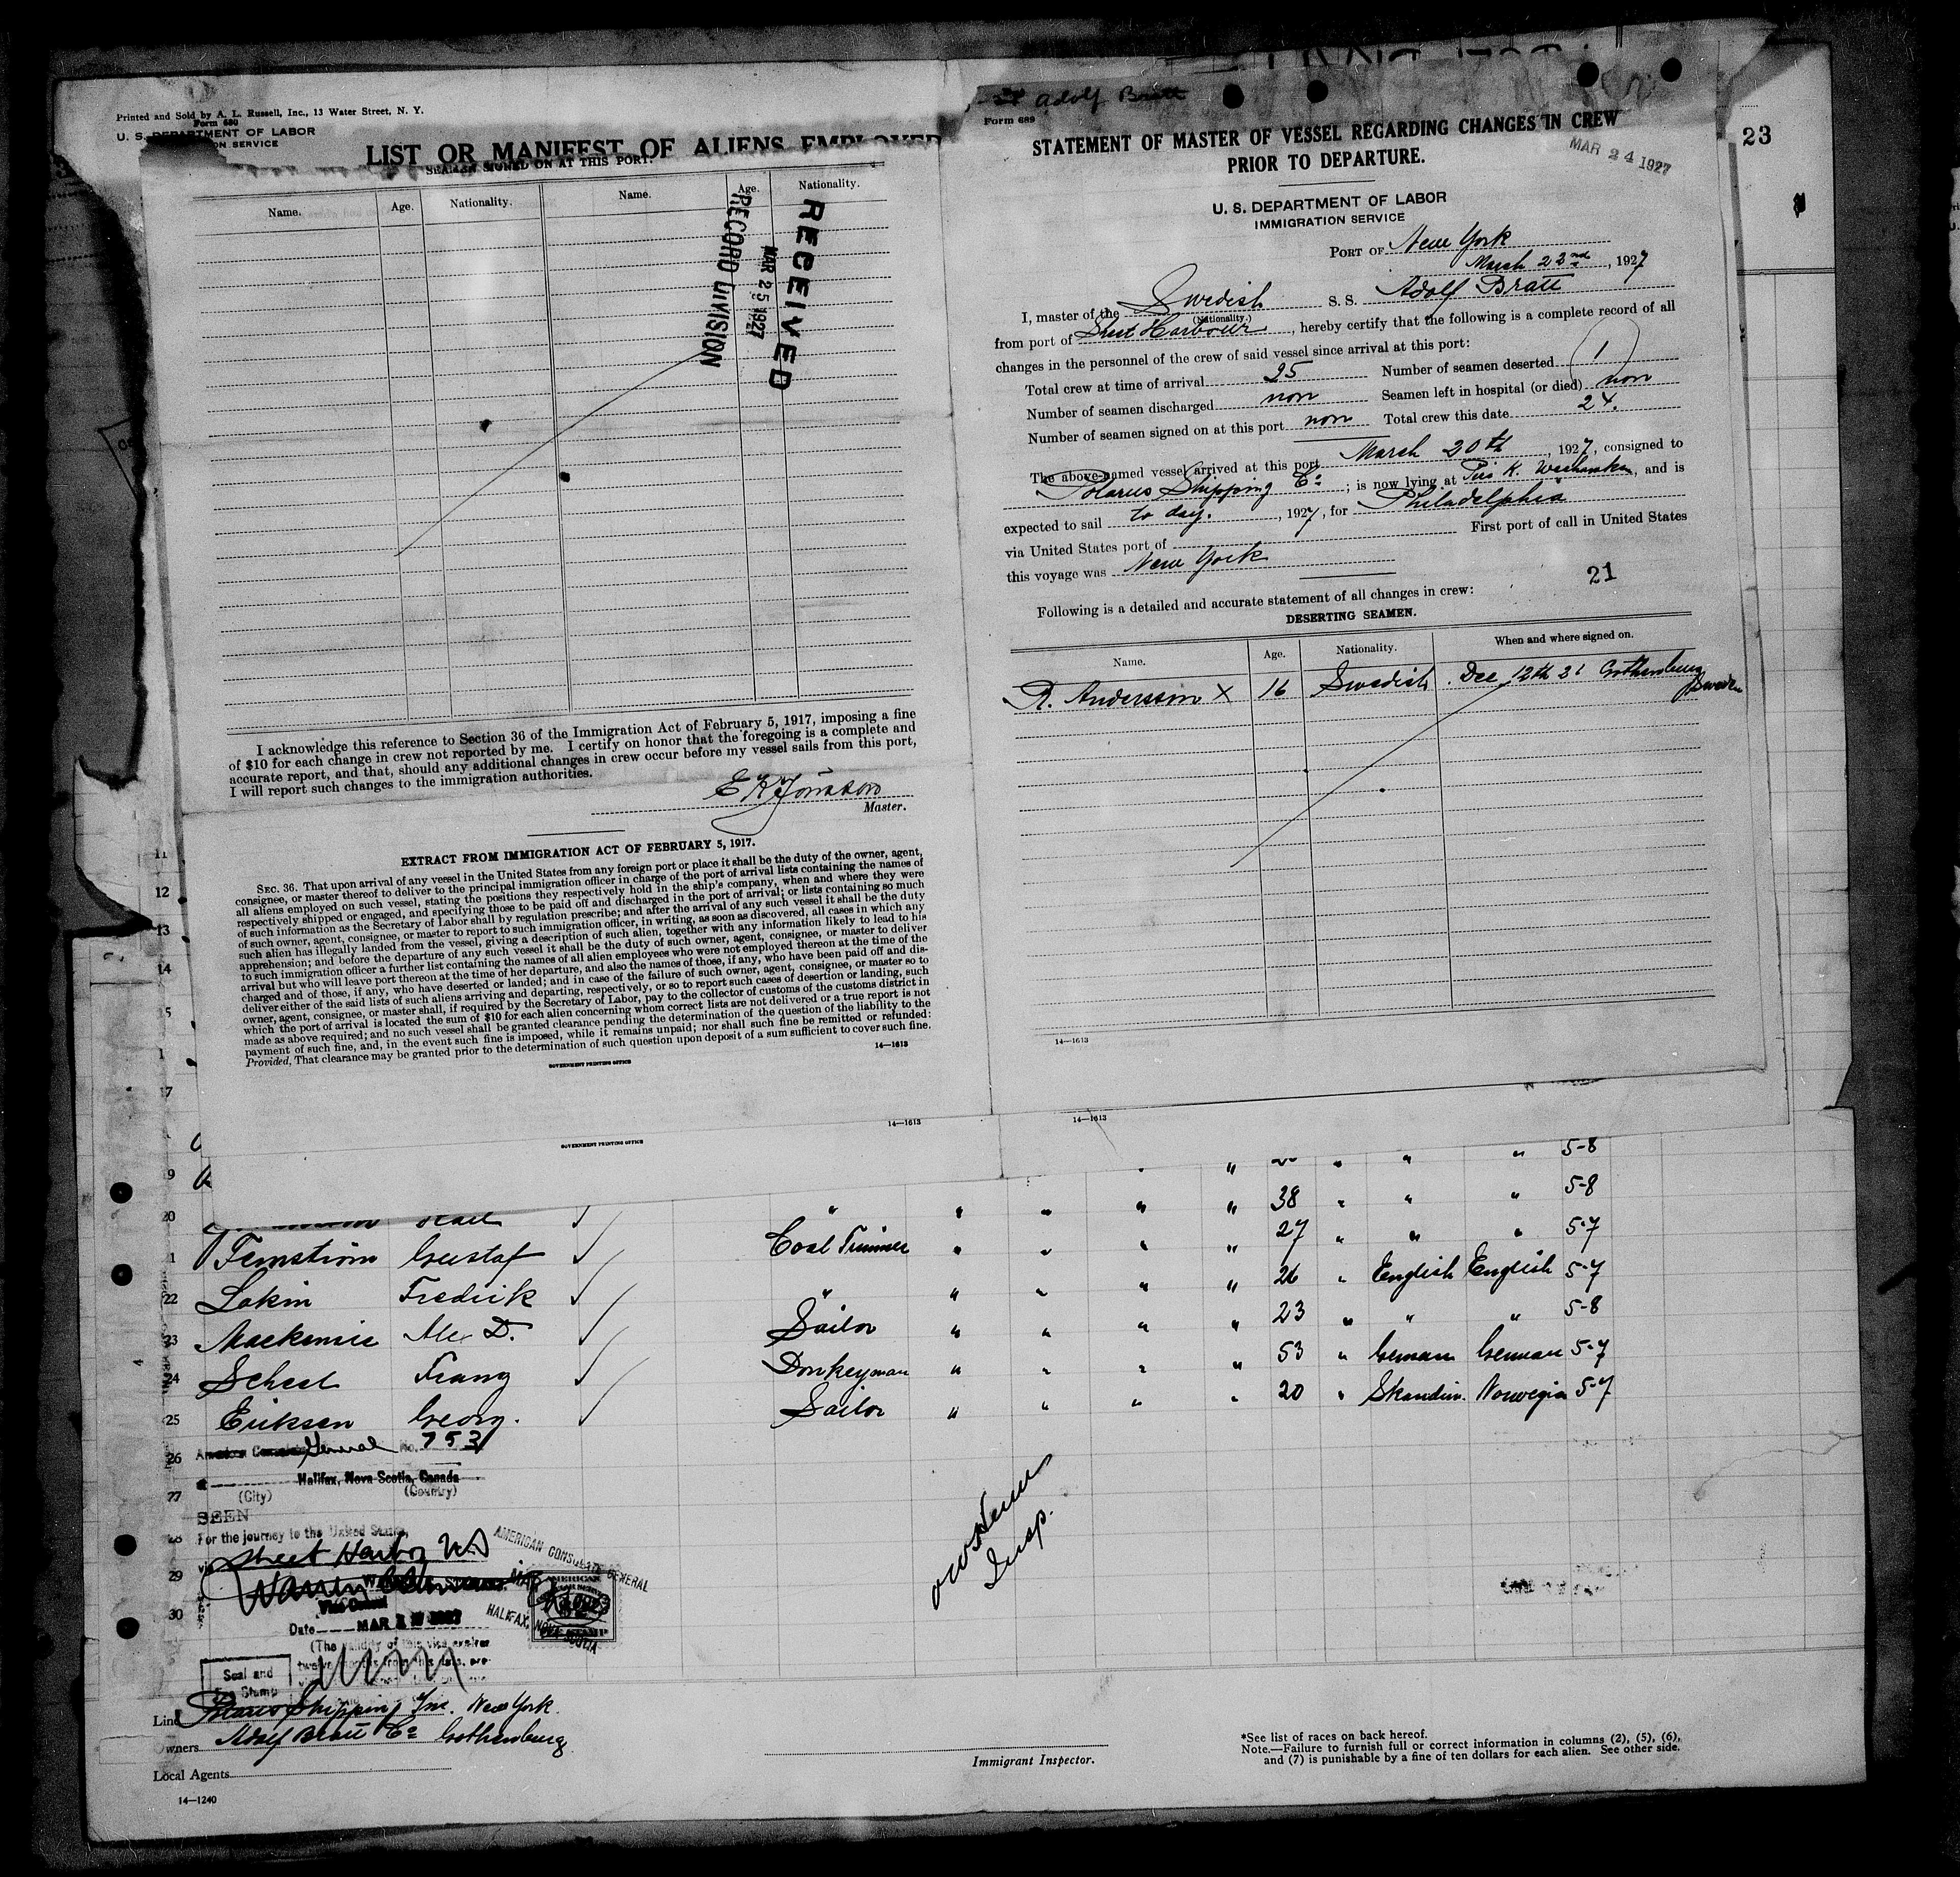 Printed and Sold by A. L. Russell, Inc., 13 Water Street, N. Y.
Form 680
U. S. DEPARTMENT OF LABOR
LIST OR MANIFEST OF ALIENS EMPLOYED
SEAMEN SIGNED ON AT THIS PORT.
Name. Age. Nationality. Name. Age. Nationality.
RECEIVED
MAR 25 1927
RECORD DIVISION
I acknowledge this reference to Section 36 of the Immigration Act of February 5, 1917, imposing a fine
of $10 for each change in crew not reported by me. I certify on honor that the foregoing is a complete and
accurate report, and that, should any additional changes in crew occur before my vessel sails from this port,
I will report such changes to the immigration authorities.
Master.
EXTRACT FROM IMMIGRATION ACT OF FEBRUARY 5, 1917.
SEC. 36. That upon arrival of any vessel in the United States from any foreign port or place it shall be the duty of the owner, agent,
consignee, or master thereof to deliver to the principal immigration officer in charge of the port of arrival lists containing the names of
all aliens employed on such vessel, stating the positions they respectively hold in the ship's company, when and where they were
respectively shipped or engaged, and specifying those to be paid off and discharged in the port of arrival; or lists containing so much
of such information as the Secretary of Labor shall by regulation prescribe; and after the arrival of any such vessel it shall be the duty
of such owner, agent, consignee, or master to report to such immigration officer, in writing, as soon as discovered, all cases in which any
such alien has illegally landed from the vessel, giving a description of such alien, together with any information likely to lead to his
apprehension; and before the departure of any such vessel it shall be the duty of such owner, agent, consignee, or master to deliver
to such immigration officer a further list containing the names of all alien employees who were not employed thereon at the time of the
arrival but who will leave port thereon at the time of her departure, and also the names of those, if any, who have been paid off and dis-
charged and of those, if any, who have deserted or landed; and in case of the failure of such owner, agent, consignee, or master so to
deliver either of the said lists of such aliens arriving and departing, respectively, or so to report such cases of desertion or landing, such
owner, agent, consignee, or master shall, if required by the Secretary of Labor, pay to the collector of customs of the customs district in
which the port of arrival is located the sum of $10 for each alien concerning whom correct lists are not delivered or a true report is not
made as above required; and no such vessel shall be granted clearance pending the determination of the question of the liability to the
payment of such fine, and, in the event such fine is imposed, while it remains unpaid; nor shall such fine be remitted or refunded:
Provided, That clearance may be granted prior to the determination of such question upon deposit of a sum sufficient to cover such fine.
14—1613
GOVERNMENT PRINTING OFFICE
14—1613
GOVERNMENT PRINTING OFFICE
Adolf Bratt
Form 689
STATEMENT OF MASTER OF VESSEL REGARDING CHANGES IN CREW
PRIOR TO DEPARTURE.
MAR 24 1927
23
U. S. DEPARTMENT OF LABOR
IMMIGRATION SERVICE
PORT OF New York
March 23rd, 1927
I, master of the Swedish S. S. Adolf Bratt
(Nationality.)
from port of Sheet Harbour, hereby certify that the following is a complete record of all
changes in the personnel of the crew of said vessel since arrival at this port:
Total crew at time of arrival 25 Number of seamen deserted 1
Number of seamen discharged non Seamen left in hospital (or died) non
Number of seamen signed on at this port non Total crew this date 24.
The above-named vessel arrived at this port March 20th, 1927, consigned to
Polarus Shipping Co; is now lying at Pier K. Weehawken, and is
expected to sail to day., 1927, for Philadelphia
via United States port of First port of call in United States
this voyage was New York
21
Following is a detailed and accurate statement of all changes in crew:
DESERTING SEAMEN.
Name. Age. Nationality. When and where signed on.
R. Andersson X 16 Swedish. Dec 12th 21 Gothenburg
Sweden
14—1613
14—1613
11
12
13
14
17
9 " " " 5-8
20 " " " " " 38 " " " 5-8
1 Fernström Gustaf ✓ Coal Trimmer " " " " 27 " " " 5-7
22 Lakin Fredrik ✓ " " " " " 26 " English English 5-7
23 Mackenzie Alex D. ✓ Sailor " " " " 23 " " " 5-8
24 Scheel Franz ✓ Donkeyman " " " " 53 " German German 5-7
25 Eriksen Georg. ✓ Sailor " " " " 20 " Skandin. Norwegia 5-7
26 General No. 753
Halifax, Nova Scotia, Canada
27 (City) (Country)
SEEN
28 For the journey to the United States,
via Sheet Harbor NS
29
Vice Consul
30
Date MAR 1927
(The validity of this visa expires
twelve months from this date, pro-
AMERICAN CONSULATE GENERAL
HALIFAX, NOVA SCOTIA
AMERICAN
FEE STAMP
Seal and
Fee Stamp
Insp.
Line Polarus Shipping Inc. New York.
Owners Adolf Bratt Co Gothenburg.
Local Agents
14—1240
Immigrant Inspector.
*See list of races on back hereof.
Note.—Failure to furnish full or correct information in columns (2), (5), (6),
and (7) is punishable by a fine of ten dollars for each alien. See other side.